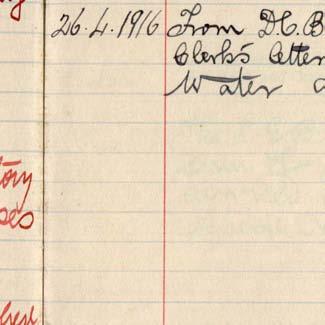 26.4.1916 From D.C.B
Clerk's Atten
Water
tory
ses